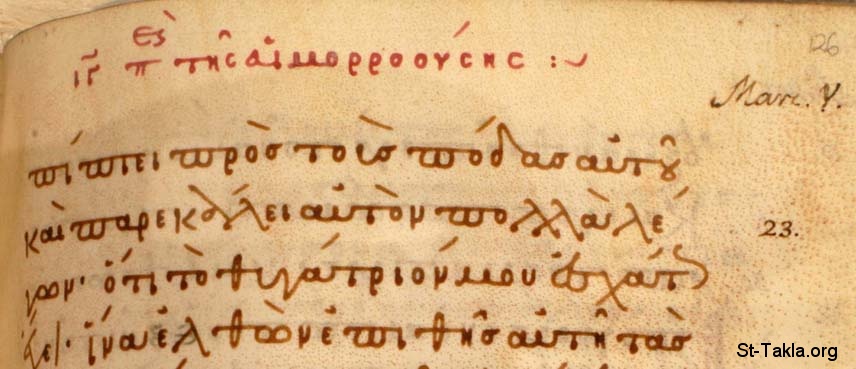 126
ιγ π τῆς αἱμορροούσης :~
Marc. V.
πίπτει πρὸς τοὺς πόδας αὐτοῦ
καὶ παρεκάλει αὐτὸν πολλὰ λέ
23.
γων· ὅτι τὸ θυγάτριόν μου ἐσχάτως
ἔχει· ἵνα ἐλθὼν ἐπιθῆς αὐτῆ τὰς
St-Takla.org